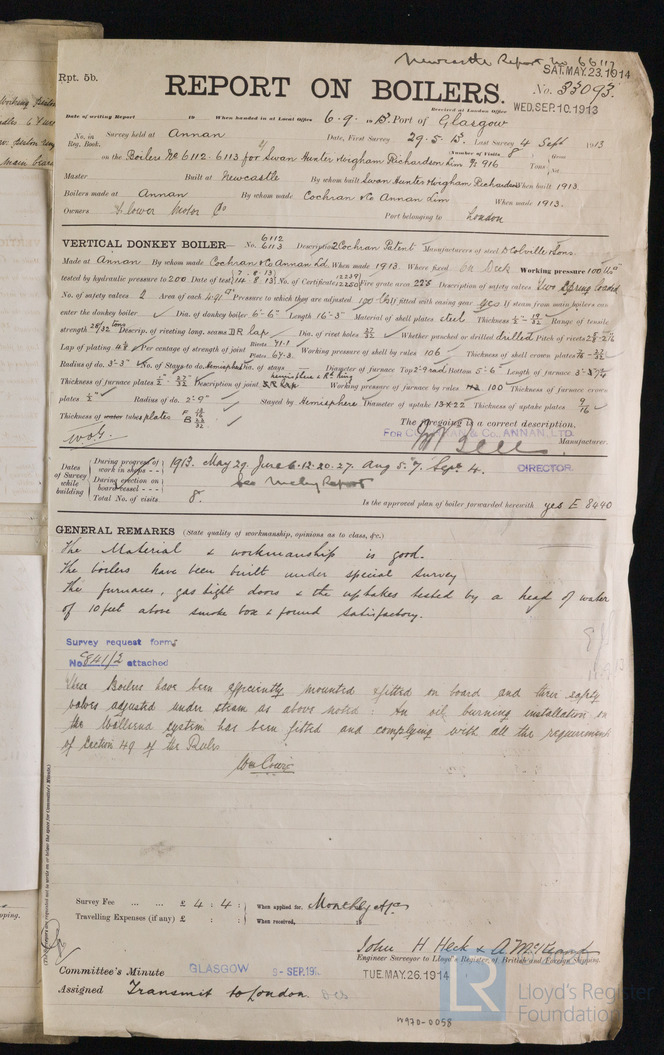 Newcastle Report No 66117
Rpt. 5b.
SAT. MAY. 23. 1914
REPORT ON BOILERS.
No. 33093.
Received at London Office WED. SEP. 10. 1913
Date of writing Report 19 When handed in at Local Office 6-9- 1913 Port of Glasgow
No. in Reg. Book. Survey held at Annan Date, First Survey 29-5-13. Last Survey 4 Sept 1913
on the Boilers No 6112-6113 for Swan Hunter Wigham Richardson Lim No 916 (Number of Visits 8) Tons Gross Net
Master Built at Newcastle By whom built Swan Hunter Wigham Richardson When built 1913
Boilers made at Annan By whom made Cochran & Co Annan Lim When made 1913.
Owners Flower Motor Co Port belonging to London
VERTICAL DONKEY BOILER— No. 6112 6113 Description 2 Cochran Patent Manufacturers of steel D Colville & Sons.
Made at Annan By whom made Cochran & Co Annan Ld. When made 1913. Where fixed On Deck Working pressure 100 lbs
tested by hydraulic pressure to 200 Date of test 7-8-13 14-8-13 No. of Certificate 12239 12250 Fire grate area 22.5 Description of safety valves Two Spring loaded
No. of safety valves 2 Area of each 4.91 Pressure to which they are adjusted 100 lbs If fitted with easing gear yes If steam from main boilers can
enter the donkey boiler Dia. of donkey boiler 6'-6" Length 16'-3" Material of shell plates steel Thickness Range of tensile
strength Descrip. of riveting long. seams DR lap Dia. of rivet holes Whether punched or drilled drilled Pitch of rivets
Lap of plating Per centage of strength of joint Rivets 71.1 Plates 67.3 Working pressure of shell by rules 106 Thickness of shell crown plates
Radius of do. 3'-3" No. of Stays to do. Hemisphere Dia. of stays Diameter of furnace Top 2'-9 rad Bottom 5'-6" Length of furnace
Thickness of furnace plates Description of joint Working pressure of furnace by rules 100 Thickness of furnace crown
plates ½" Radius of do. 2'-9" Stayed by Hemisphere Diameter of uptake 13 x 22 Thickness of uptake plates 9/16
Thickness of water tubes plates F B
The foregoing is a correct description.
FOR COCHRAN & Co., ANNAN, LTD. Manufacturer.
DIRECTOR.
Dates of Survey while building
During progress of work in shops - - 1913. May 29. June 6.12.20.27. Aug 5.7. Sept 4.
During erection on board vessel - - - See Newcastle Report
Total No. of visits 8.
Is the approved plan of boiler forwarded herewith yes E 8440
GENERAL REMARKS (State quality of workmanship, opinions as to class, &c.)
The Material & workmanship is good.
The boilers have been built under special survey
The furnaces, gas tight doors & the uptakes tested by a head of water
of 10 feet above smoke box & found satisfactory.
Survey request form
No. 841/2 attached
These Boilers have been efficiently mounted & fitted on board and their safety
valves adjusted under steam as above noted: An oil burning installation on
the Wallsend system has been fitted and complying with all the requirements
of Section 49 of the Rules.
Survey Fee ... ... £ 4 : 4 : When applied for, Monthly A/c
Travelling Expenses (if any) £ : : When received,
John H Heck & A McKeand
Engineer Surveyor to Lloyd's Register of British and Foreign Shipping.
Committee's Minute GLASGOW 9-SEP.1913 TUE. MAY. 26. 1914
Assigned Transmit to London
LR Lloyd's Register Foundation
W970-0058